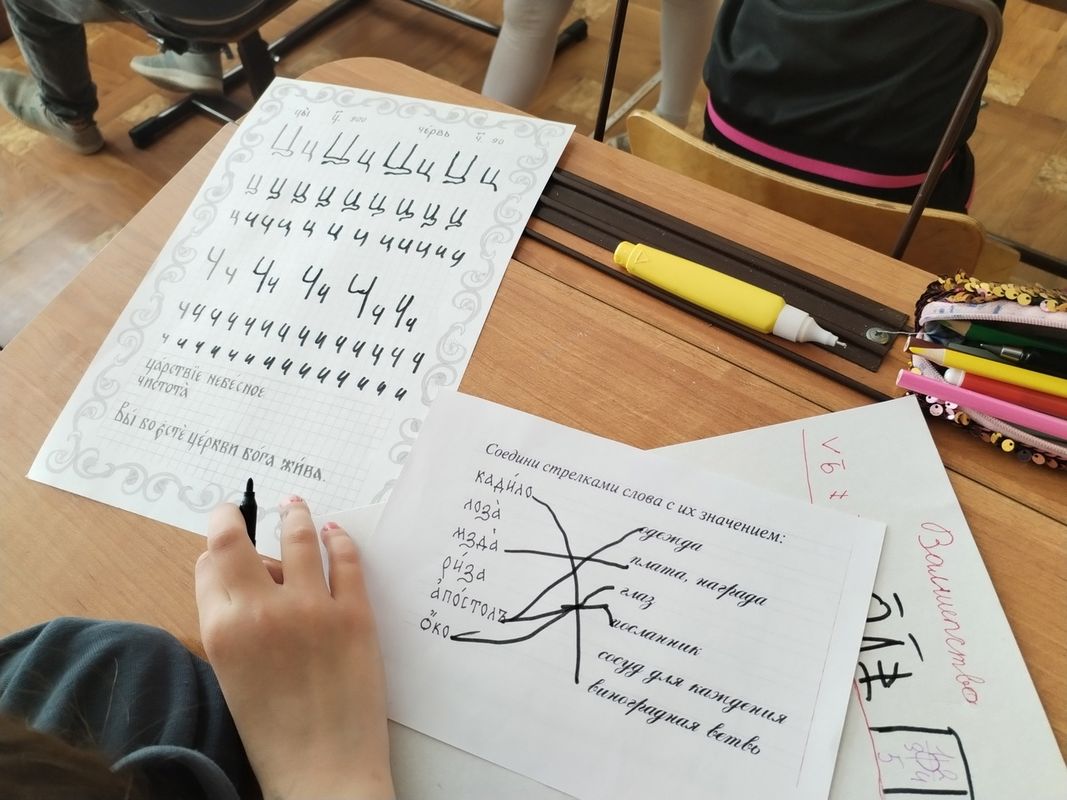 цы ц҃ 900 червь ч҃ 90
Ц ц Ц ц Ц ц Ц ц
ц ц ц ц ц ц ц ц ц
ч ч ч ч
Ч ч Ч ч Ч ч Ч ч Ч ч
ч ч ч ч ч ч ч ч ч ч ч ч ч
ч ч ч ч ч ч ч ч ч ч ч ч ч
ца́рствїе небе́сное
чистота̀
Вы́ во є҆стѐ це́ркви бо́га жи́ва.
Соедини стрелками слова с их значением:
кади́ло
лоза̀
мзда̀
ри́за
а҆по́столъ
ѻ҆́ко
одежда
плата, награда
глаз
посланник
сосуд для каждения
виноградная ветвь
5